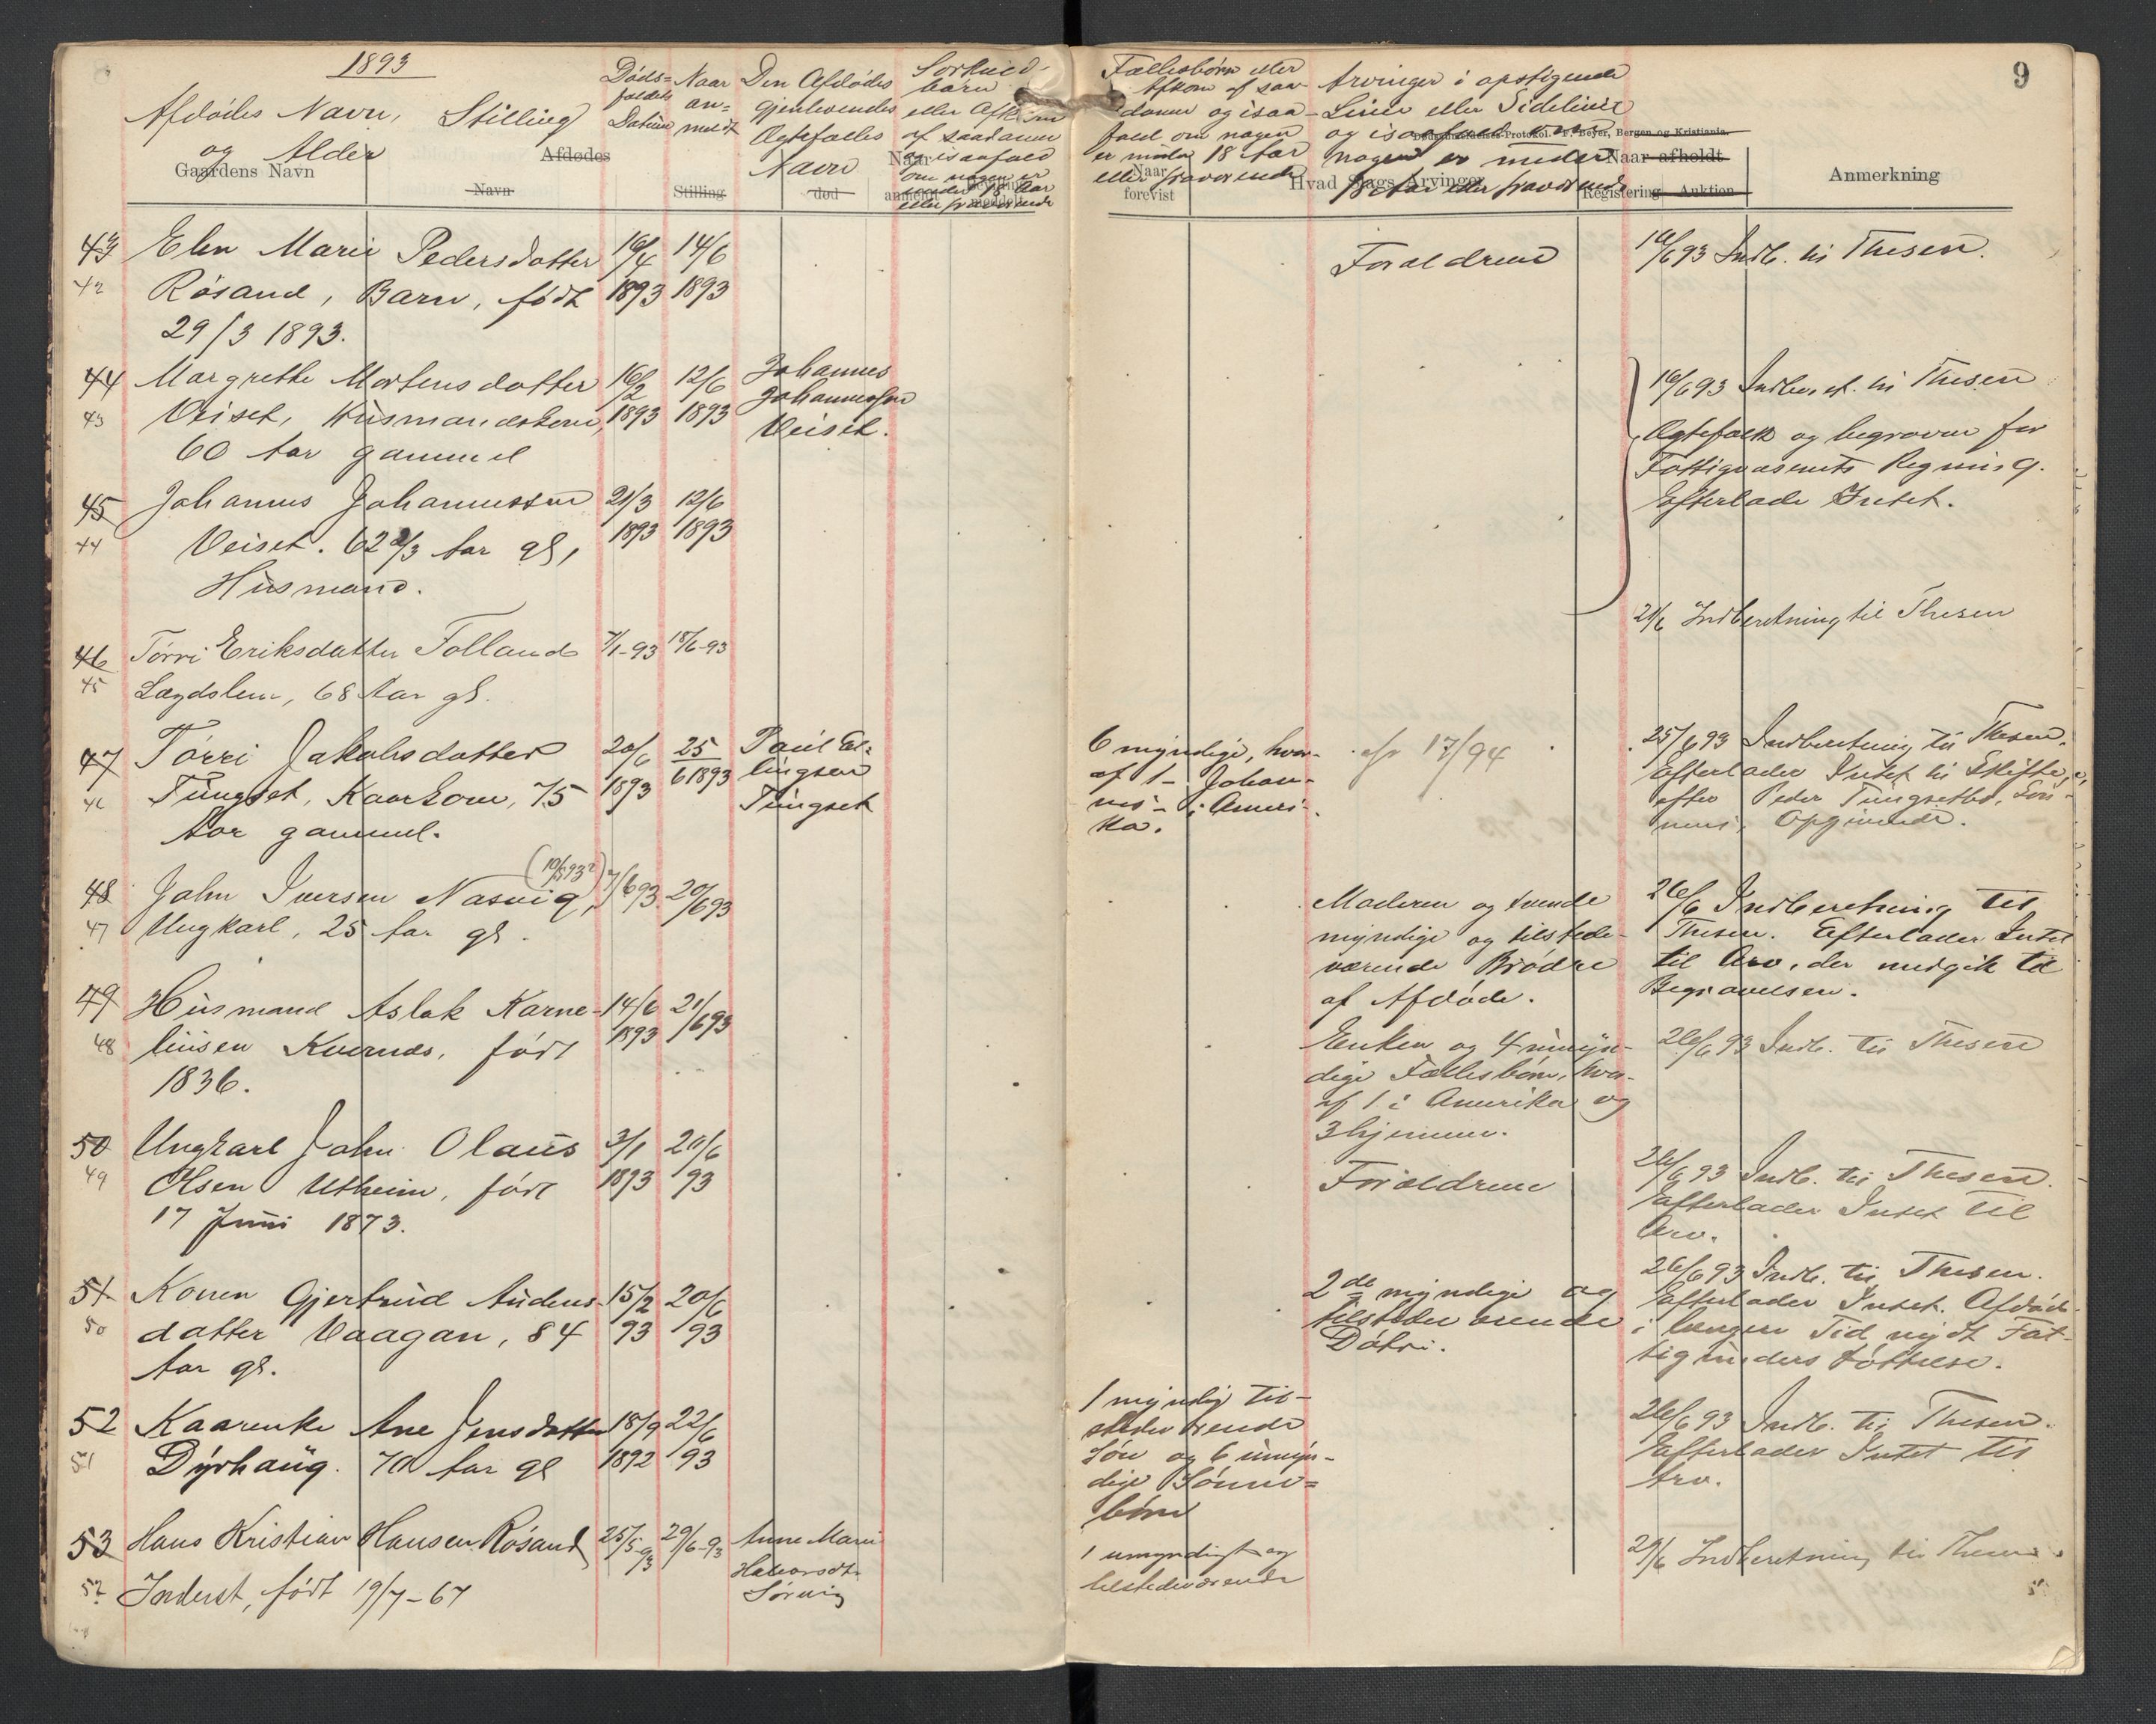 1893
9
Afdødes Navn, Stilling
og Alder
Gaardens Navn
Afdødes
Navn
Stilling
Døds-
faldets
Datum
Naar
an-
meldt
Den Afdødes
gjenlevendes
Ægtefælles
Navn
død
Særkuld-
børn
eller Afkom
af saadanne
og isaafald
om nogen er
under 18 Aar
eller fraværende
Fællesbørn eller
Afkom af saa-
danne og isaa-
fald om nogen
er under 18 Aar
eller fraværende
Naar
forevist
Arvinger i opstigende
Linie eller Sidelinie
og isaafald om
nogen er under
18 Aar eller fraværende
Dødsanmeldelses-Protokol. F. Beyer, Bergen og Kristiania.
Hvad Slags Arvinger
Naar afholdt
Registering Auktion
Anmerkning
43 Elen Marie Pedersdatter 16/4 14/6 Forældrene 16/6 93 Indb. til Thesen.
42 Røsand, Barn, født 1893 1893
29/3 1893.
44 Margrethe Mortensdatter 16/2 12/6 Johannes 16/6 93 Indberet. til Thesen
43 Veiset, Husmandskone, 1893 1893 Johannessen Ægtefolk og begraven for
60 Aar gammel Veiset. Fattigvæsenets Regning.
45 Johannes Johannessen 21/3 12/6 Efterlade Intet.
44 Veiset. 62 2/3 Aar gl, 1893 1893
Husmand.
21/6 Indberetning til Thesen
46 Tørri Eriksdatter Folland 7/1-93 18/6-93
45 Lægdslem, 68 Aar gl.
47 Tørri Jakobsdatter 20/6 25/6 1893 Paul El- 6 myndige, hvor- 17/94 25/6 93 Indberetning til Thesen.
46 Tungset, Kaarkone, 75 1893 lingsen af 1 - Johan- Efterlader Intet til Skifte,
Aar gammel. Tungset nes - i Ameri- efter Peder Tungsetbø, Søn-
ka. nens Opgivende.
48 John Iversen Nasvig, (10/5 93?) 7/6 93 20/6 93 Moderen og tvende 26/6 Indberetning til
47 Ungkarl, 25 Aar gl. myndige og tilstede- Thesen. Efterlader Intet
værende Brødre til Arv, der medgik til
af Afdøde. Begravelsen.
49 Husmand Aslak Karne- 14/6 21/6 93 Enken og 4 umyn- 26/6 93 Indb. til Thesen
48 liusen Kvernes, født 1893 dige Fællesbørn, hvor-
1836. af 1 i Amerika og
3 hjemme.
50 Ungkarl John Olaus 3/1 20/6 Forældrene 26/6 93 Indb. til Thesen.
49 Olsen Utheim, født 1893 93 Efterlader Intet til
17 Juni 1873. Arv.
51 Konen Gjertrud Audens- 15/2 20/6 2de myndige og 26/6 93 Indb. til Thesen.
50 datter Vaagan, 84 93 93 tilstedeværende Efterlader Intet. Afdød
Aar gl. Døtre. i længere Tid nydt Fat-
tigunderstøttelse.
52 Kaarenke Ane Jensdatter 18/9 22/6 1 myndig til- 26/6 93 Indb. til Thesen.
51 Dyrhaug. 70 Aar gl 1892 93 stedeværende Efterlader Intet til
Søn og 6 umyn- Arv.
dige Sønne-
børn
53 Hans Kristian Hansen Røsand 25/5-93 29/6-93 Anne Marie 1 umyndigt og 29/6 Indberetning til Thesen.
52 Inderst, født 19/7-67 Halvorsdtr. tilstedeværende
Sørvig